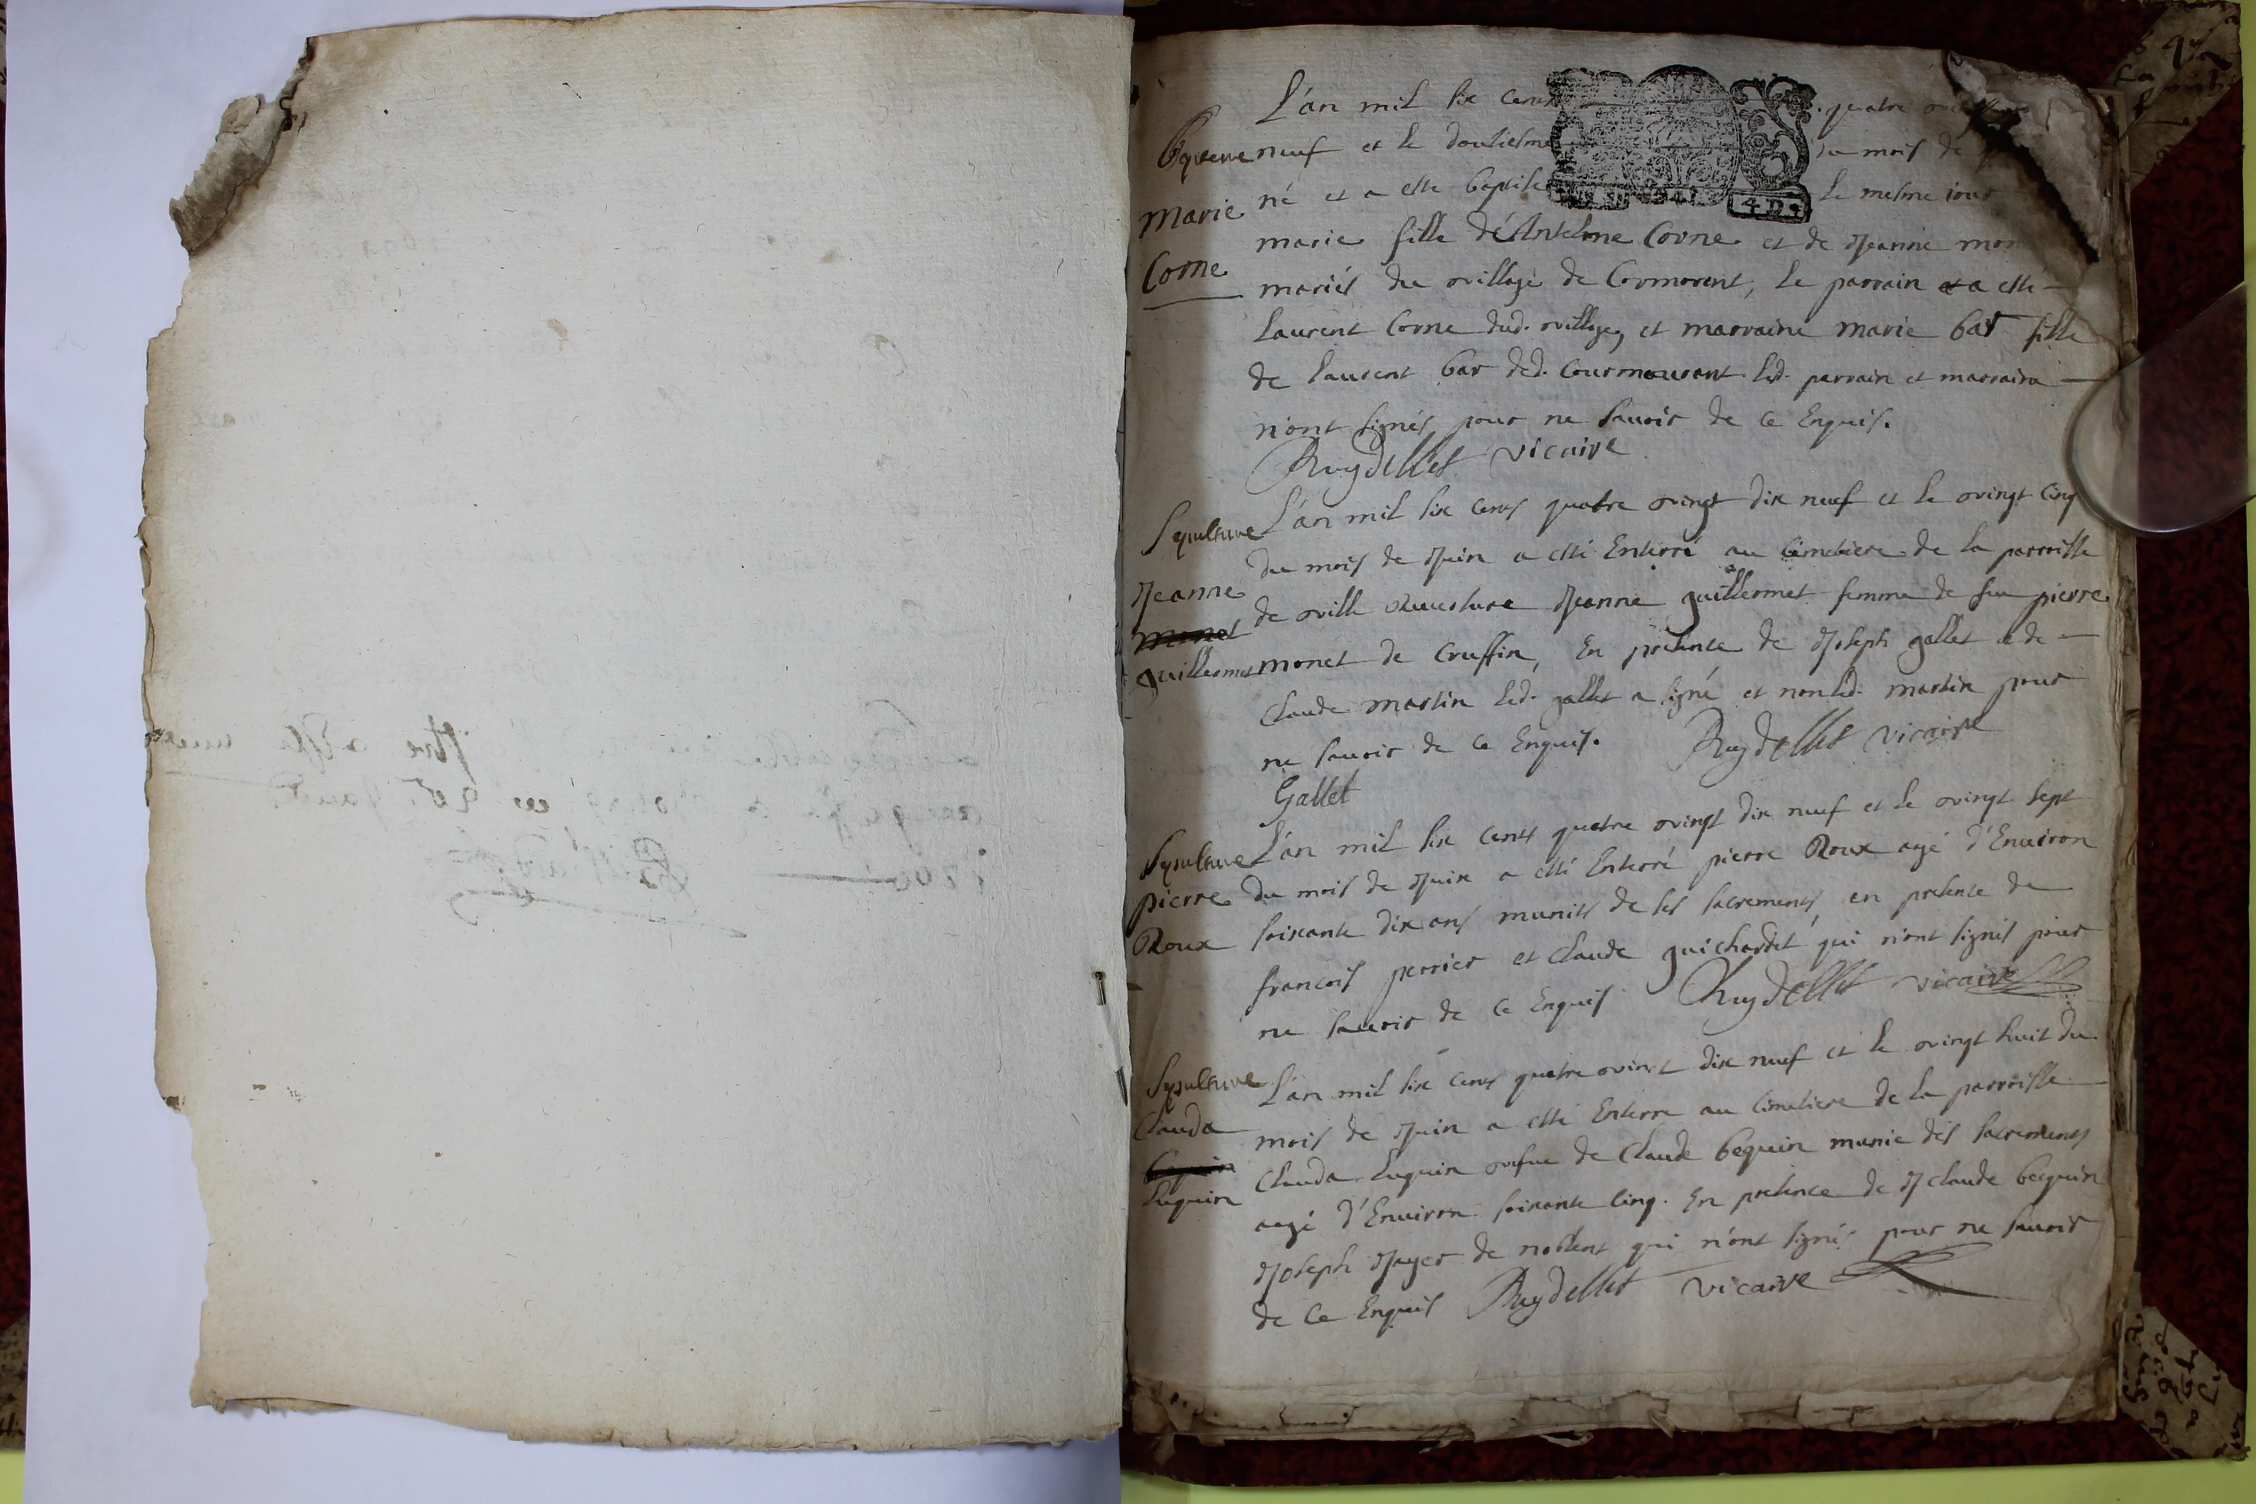 L'an mil six cents quatre vingt
Bapteme neuf et le douziesme du mois de
Marie né et a esté baptisé le mesme jour
marie fille d'Antelme Corne et de Jeanne mon
Corne mariés du village de Cormorent, le parrain a esté
Laurent Corne dud. village, et marraine marie bar fille
de laurent bar ded. Courmourant led. parrain et marraine
n'ont signés pour ne scavoir de ce Enquis.
Ruydellet vicaire
Sepulture L'an mil six cents quatre vingt dix neuf et le vingt cinq
du mois de Juin a esté Enterré au cimetiere de la parroisse
Jeanne de ville Reuersure Jeanne guillermet femme de feu pierre
monet
guillermet monet de Cruffin, En presence de Joseph gallet et de
Claude martin led. gallet a signé et non led. martin pour
ne scavoir de ce Enquis. Ruydellet vicaire
Gallet
Sepulture L'an mil six cents quatre vingt dix neuf et le vingt sept
pierre du mois de Juin a esté Enterré pierre Roux agé d'Enuiron
Roux soixante dix ans munits de ses sacrements, en presence de
francois perrier et Claude guichardet qui n'ont signés pour
ne scavoir de ce Enquis. Ruydellet vicaire
Sepulture L'an mil six cents quatre vingt dix neuf et le vingt huit du
Clauda mois de Juin a esté Enterre au cimetiere de la parroisse
bequin
Luquin Clauda Luquin vefue de Claude bequin munie des sacrements
aagé d'Enuiron soixante cinq. En presence de J claude becquin
Joseph Jayer de noblens qui n'ont signés pour ne scavoir
de ce Enquis Ruydellet vicaire